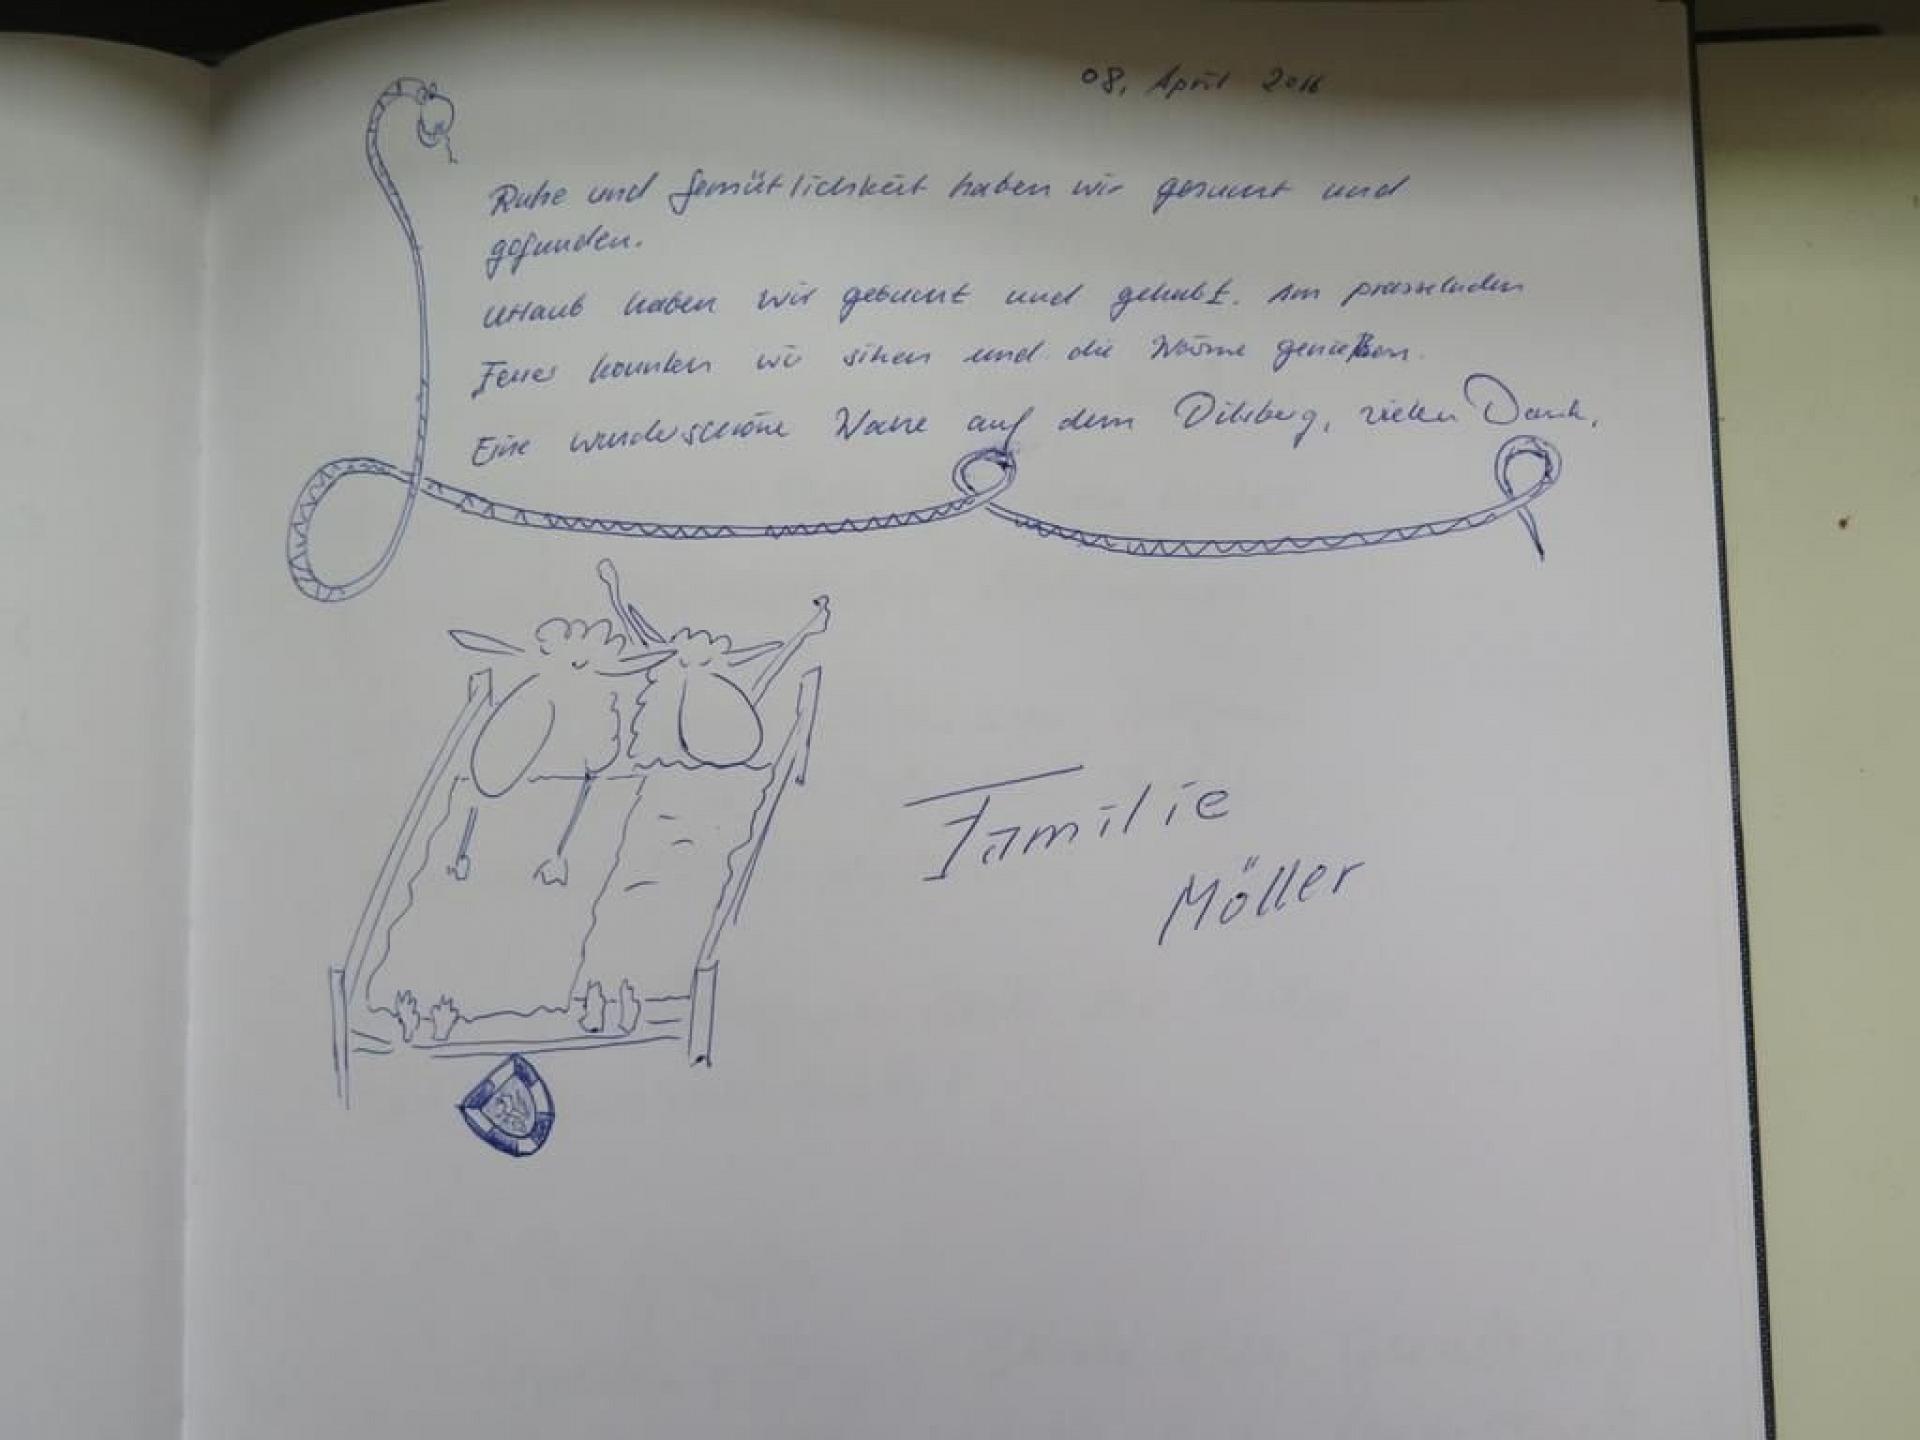 08. April 2016
Ruhe und Gemütlichkeit haben wir gesucht und
gefunden.
Urlaub haben wir gebucht und gehabt. Am prasselnden
Feuer konnten wir sitzen und die Wärme genießen.
Eine wunderschöne Woche auf dem Dilsberg, vielen Dank.
Familie
Möller